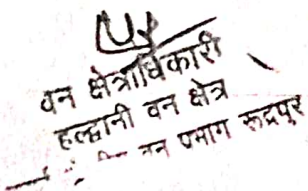 वन क्षेत्राधिकारी
हल्द्वानी वन क्षेत्र
वन प्रभाग रूद्रपुर